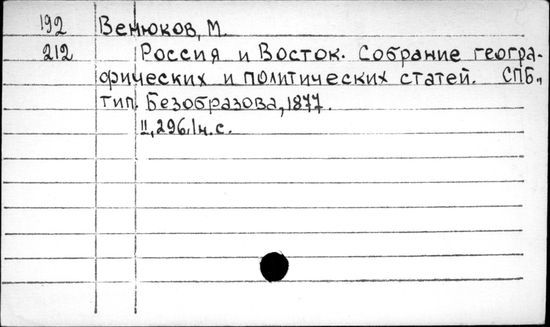 192 Венюков, М.
212 Россия и Восток. Собрание геогра-
фических и политических статей. СПБ.,
тип. Безобразова, 1877.
II, 296, 1 н. с.